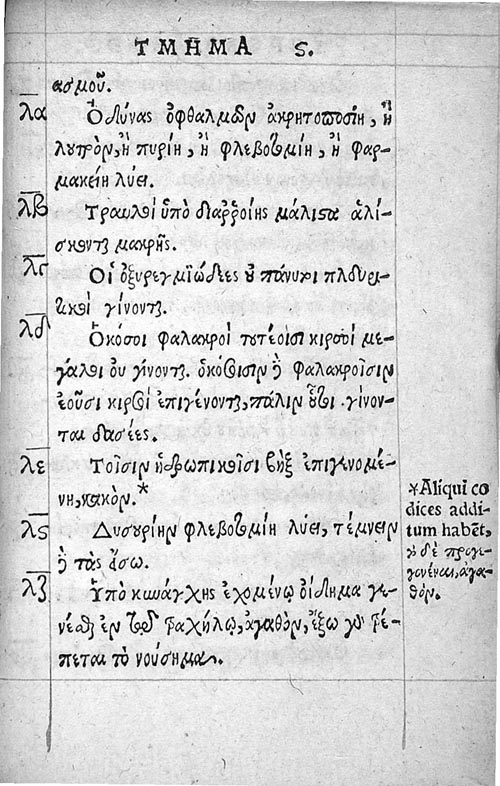 ΤΜΗΜΑ ϛ.
ασμοῦ.
λα Ὀδύνας ὀφθαλμῶν ἀκρητοποσίη, ἢ
λουτρὸν, ἢ πυρίη, ἢ φλεβοτομίη, ἢ φαρ-
μακείη λύει.
λβ Τραυλοὶ ὑπὸ διαῤῥοίης μάλιστα ἁλί-
σκονται μακρῆς.
λγ Οἱ ὀξυρεγμιώδεες οὐ πάνυ τι πλευρι-
τικοὶ γίνονται.
λδ Ὁκόσοι φαλακροὶ τουτέοισι κιρσοὶ με-
γάλοι οὐ γίνονται. ὁκόσοισιν δὲ φαλακροῖσιν
ἐοῦσι κιρσοὶ ἐπιγένονται, πάλιν οὗτοι γίνον-
ται δασέες.
λε Τοῖσιν ὑδρωπικοῖσι βὴξ ἐπιγενομέ-
νη, κακὸν.*
λϛ Δυσουρίην φλεβοτομίη λύει, τέμνειν
δὲ τὰς ἔσω.
λζ Ὑπὸ κυνάγχης ἐχομένῳ οἴδημα γε-
νέσθαι ἐν τῷ τραχήλῳ, ἀγαθὸν, ἔξω γὰρ τρέ-
πεται τὸ νούσημα.
*Aliqui co
dices addi-
tum habēt,
δὲ προγι-
γονέναι, ἀγα-
θόν.